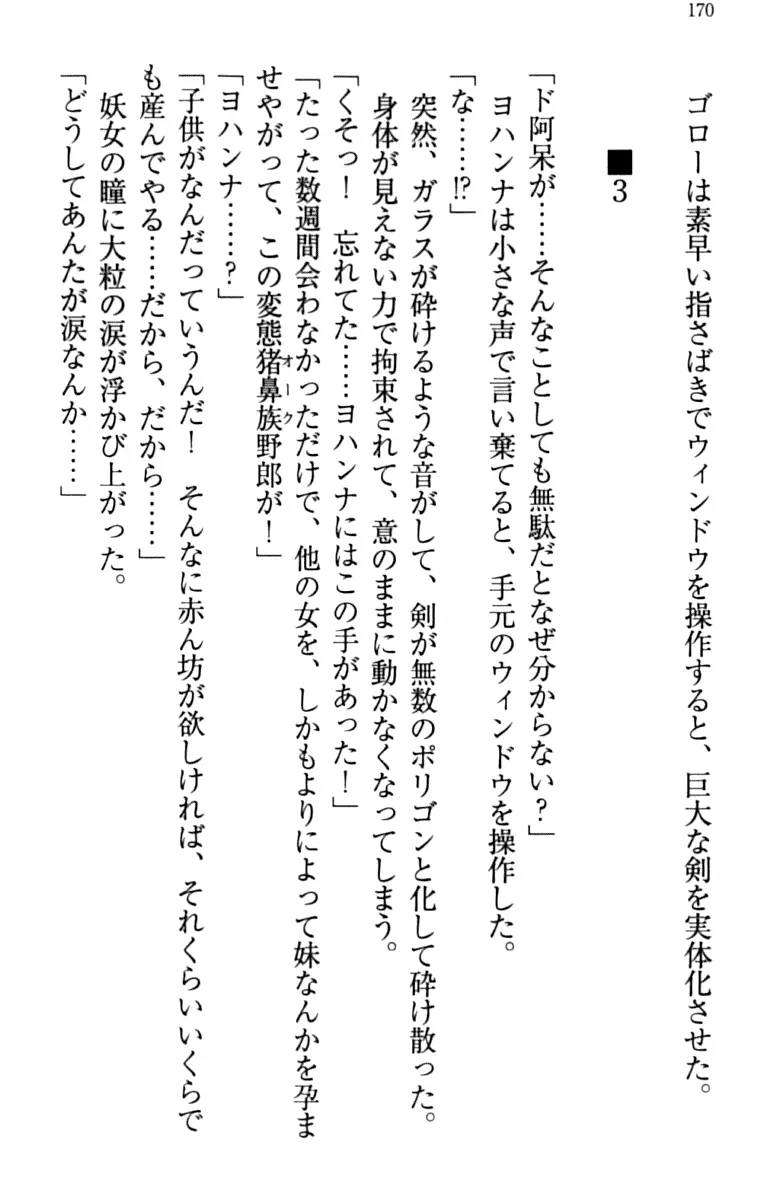 170
ゴローは素早い指さばきでウィンドウを操作すると、巨大な剣を実体化させた。
■3
「ド阿呆が……そんなことしても無駄だとなぜ分からない？」
ヨハンナは小さな声で言い棄てると、手元のウィンドウを操作した。
「な……!?」
突然、ガラスが砕けるような音がして、剣が無数のポリゴンと化して砕け散った。
身体が見えない力で拘束されて、意のままに動かなくなってしまう。
「くそっ！　忘れてた……ヨハンナにはこの手があった！」
「たった数週間会わなかっただけで、他の女を、しかもよりによって妹なんかを孕ま
せやがって、この変態猪鼻族野郎が！」
オーク
「ヨハンナ……？」
「子供がなんだっていうんだ！　そんなに赤ん坊が欲しければ、それくらいいくらで
も産んでやる……だから、だから……」
妖女の瞳に大粒の涙が浮かび上がった。
「どうしてあんたが涙なんか……」